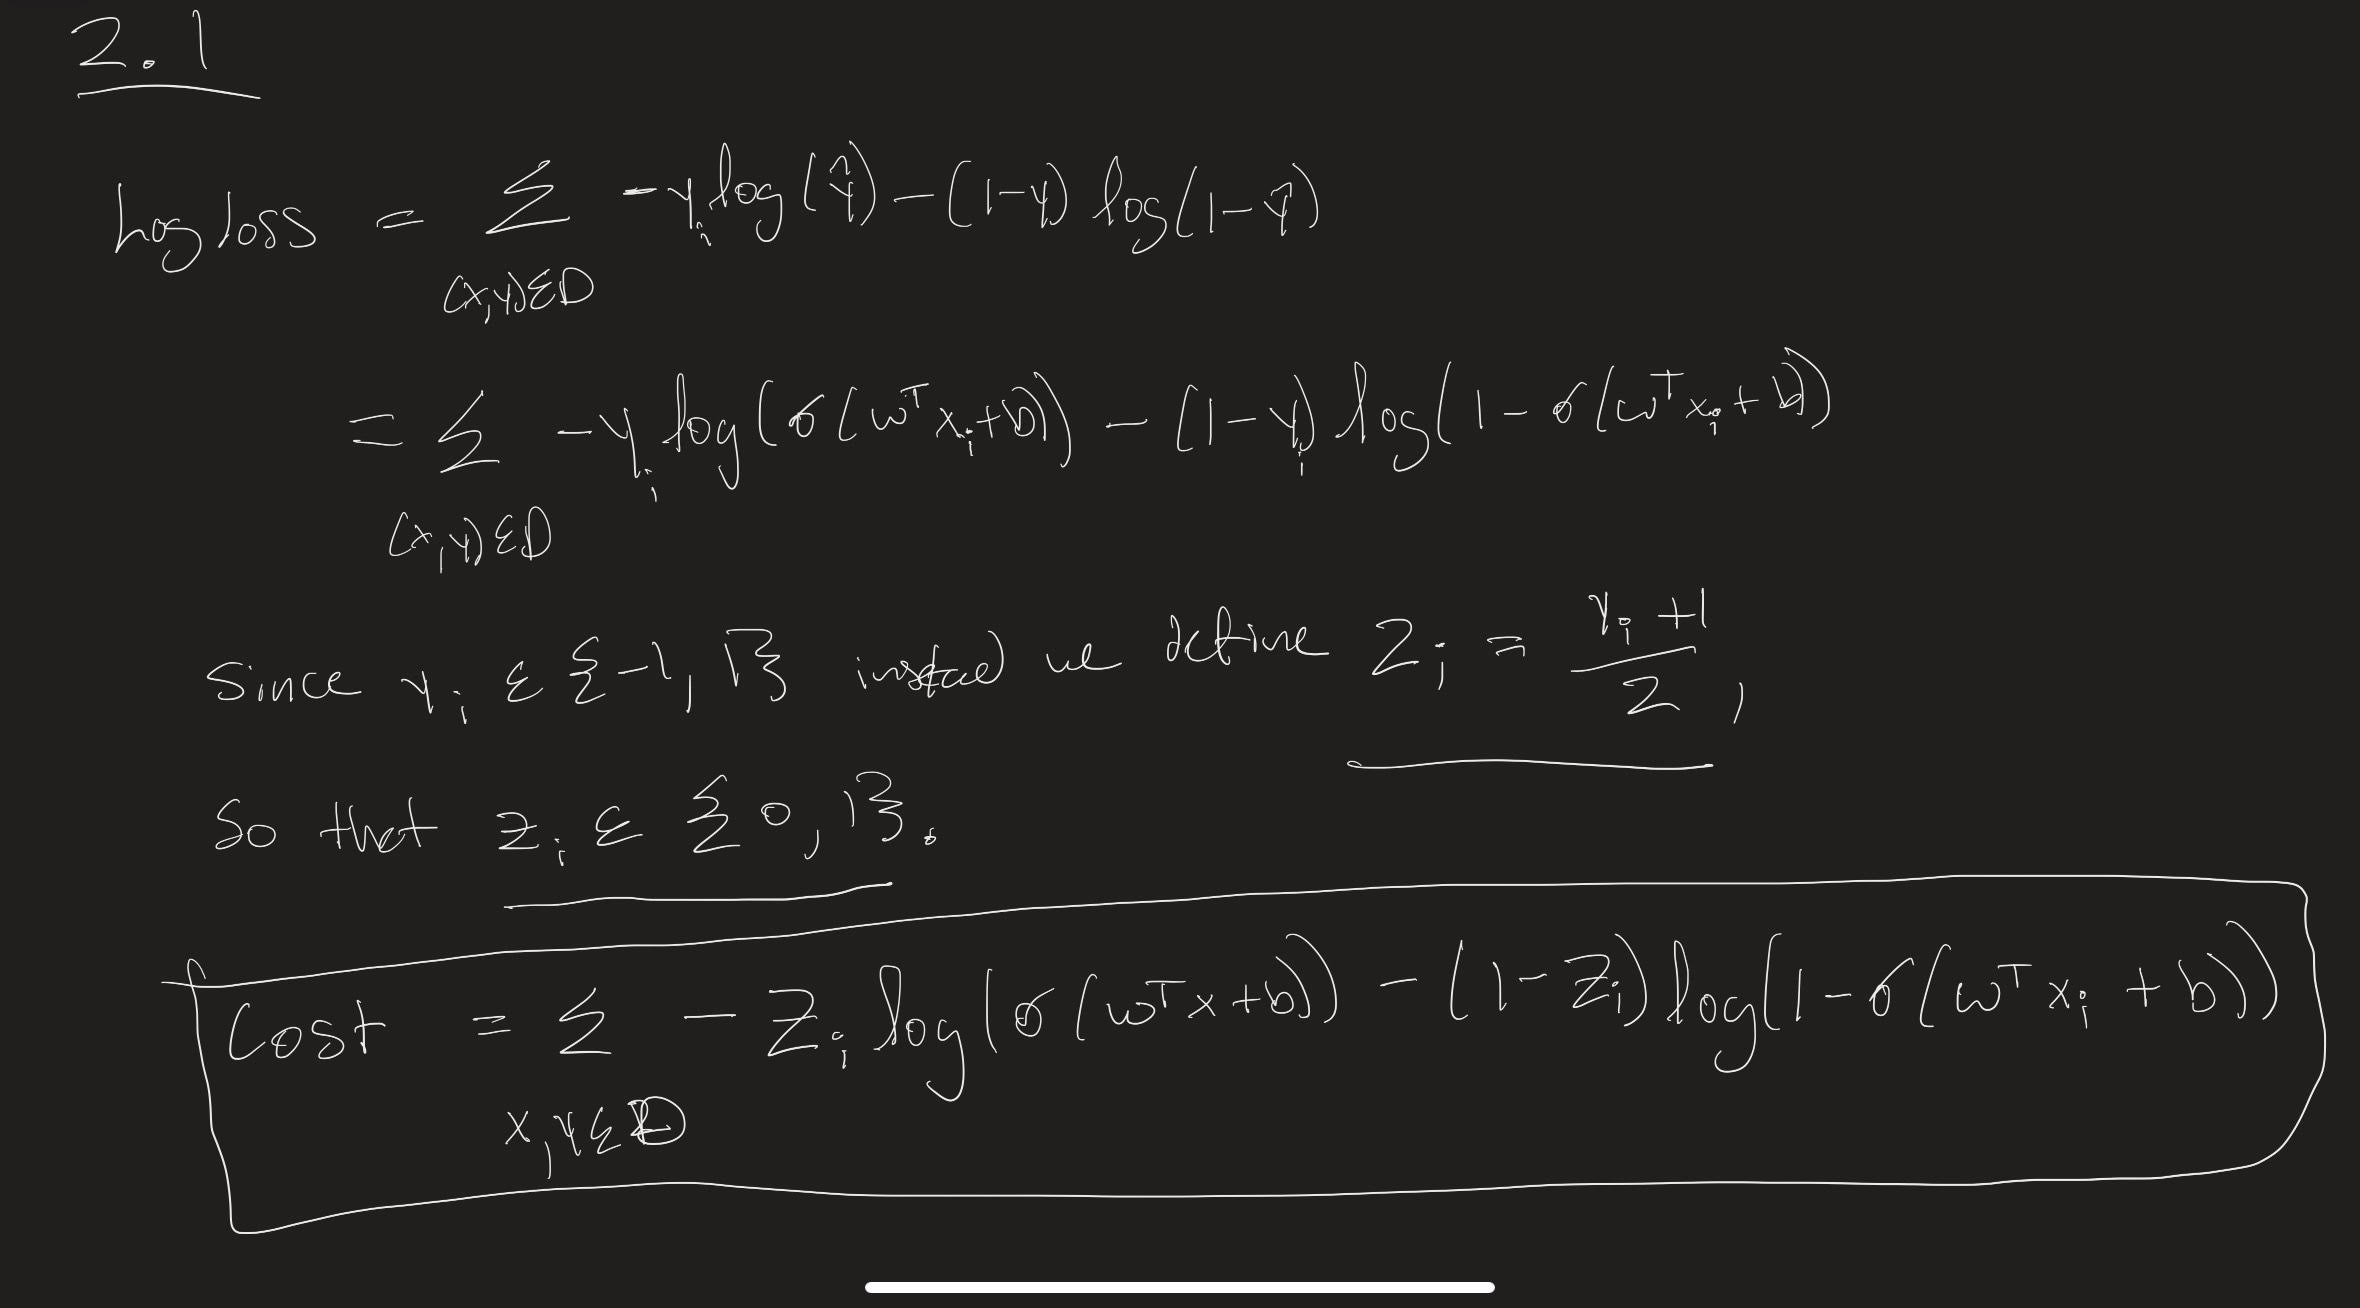 2.1
Log loss = Σ -yᵢ log(ŷ) - (1-y) log(1-ŷ)
(x,y)∈D
= Σ -yᵢ log(σ(wᵀxᵢ+b)) - (1-yᵢ) log(1-σ(wᵀxᵢ+b))
(x,y)∈D
Since yᵢ ∈ {-1,1} instead we define Zᵢ = (yᵢ+1)/2,
So that zᵢ ∈ {0,1}.
Cost = Σ - Zᵢ log(σ(wᵀx+b)) - (1-Zᵢ) log(1-σ(wᵀxᵢ+b))
x,y∈D